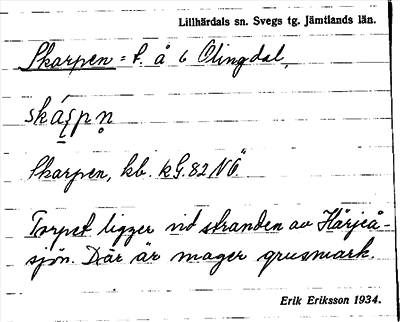 Lillhärdals sn. Svegs tg. Jämtlands län.
Skarpen = t. å 6 Olingdal,
Skarpen, kb. kG. 82 NÖ
Torpet ligger vid stranden av Härjeå-
sjön. Där är mager grusmark.
Erik Eriksson 1934.